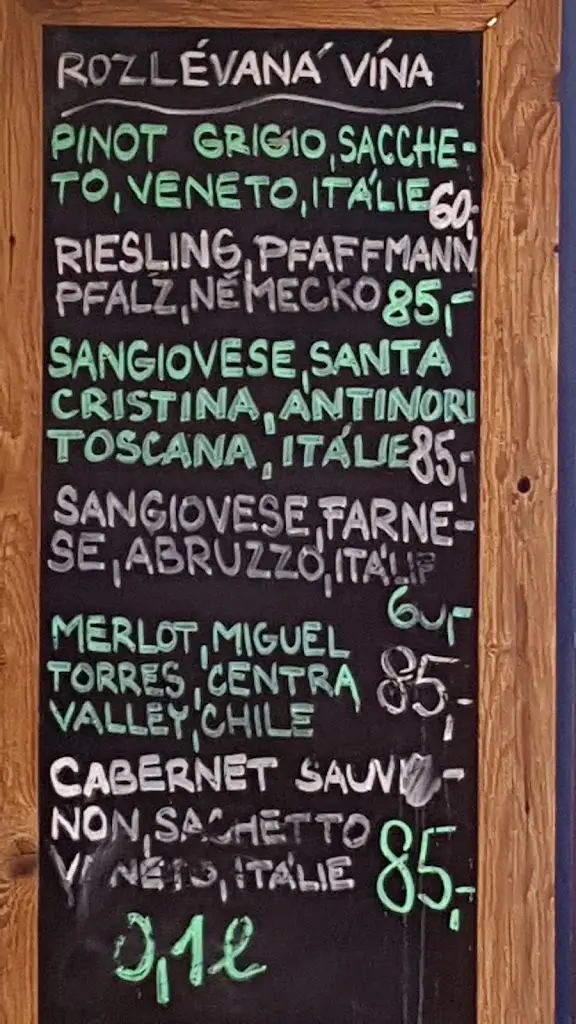 ROZLÉVANÁ VÍNA
PINOT GRIGIO, SACCHE-
TO, VENETO, ITÁLIE 60,-
RIESLING, PFAFFMANN
PFALZ, NĚMECKO 85,-
SANGIOVESE, SANTA
CRISTINA, ANTINORI
TOSCANA, ITÁLIE 85,-
SANGIOVESE, FARNE-
SE, ABRUZZO, ITÁLIE
60,-
MERLOT, MIGUEL
TORRES, CENTRA
VALLEY, CHILE 85,-
CABERNET
NON, SACHETTO
VENETO, ITÁLIE 85,-
0,1l